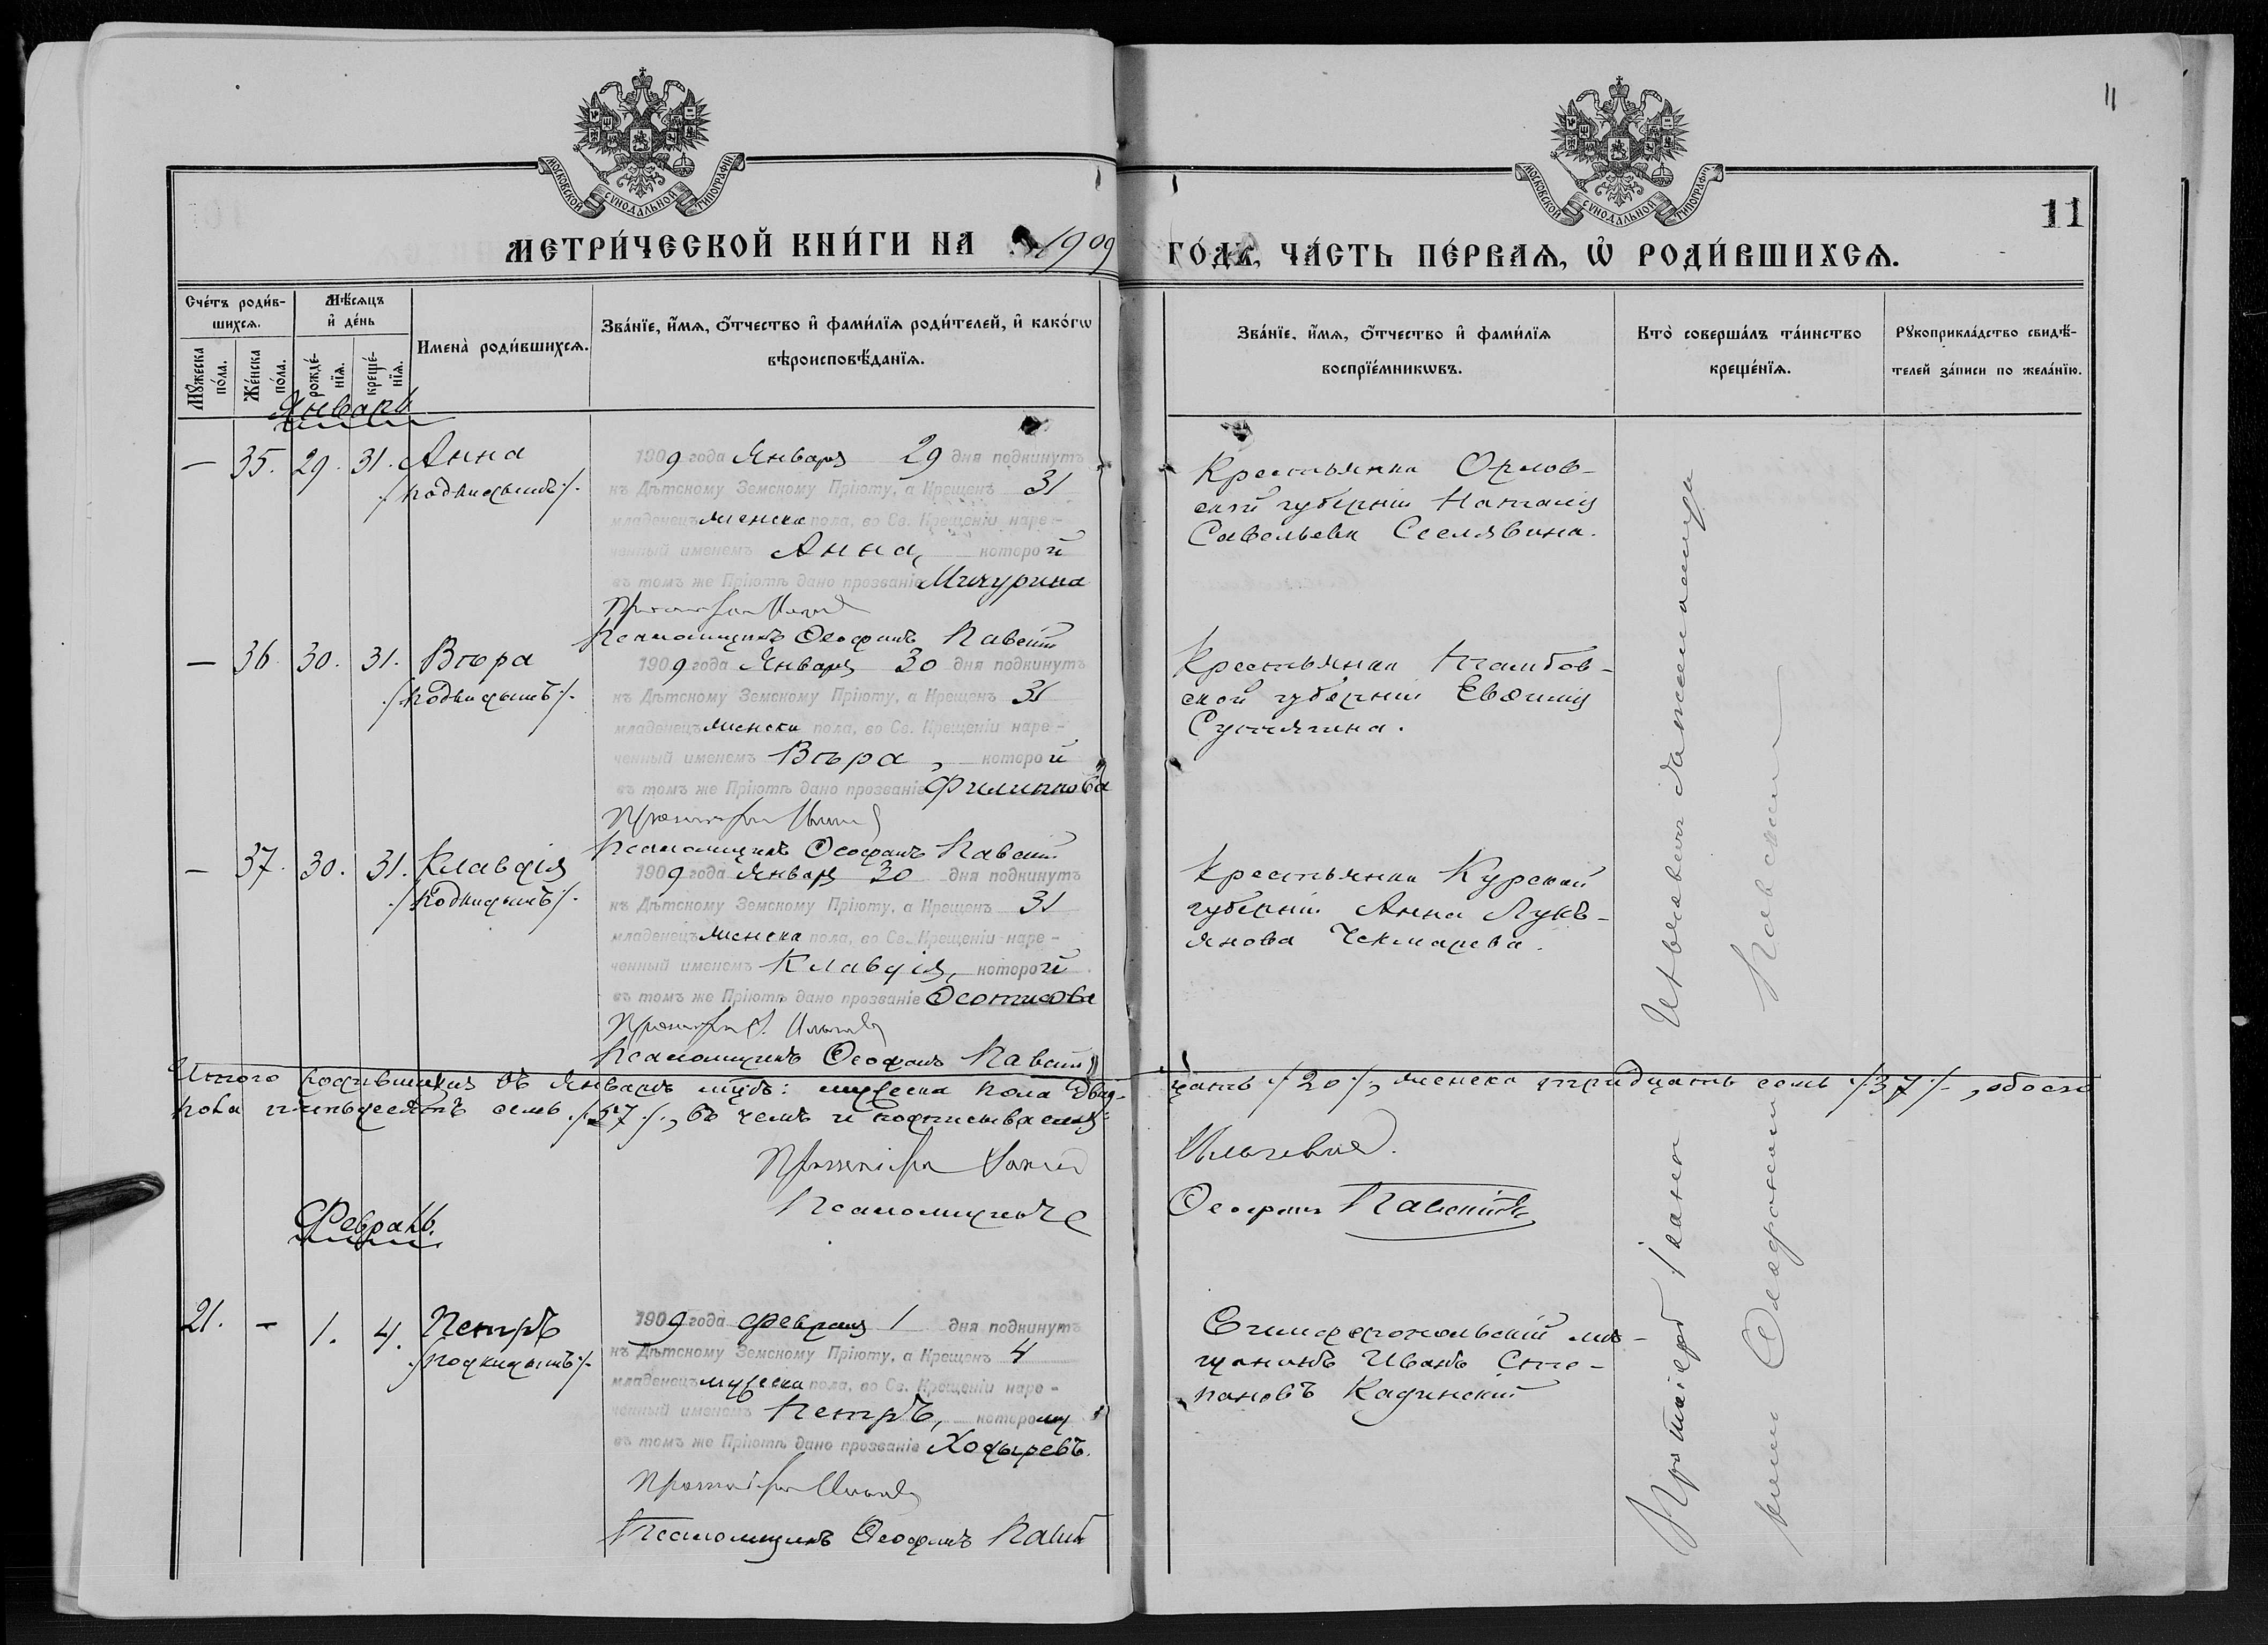 11
МОСКОВСКОЙ СУНОДАЛЬНОЙ ТИПОГРАФІИ
МОСКОВСКОЙ СУНОДАЛЬНОЙ ТИПОГРАФІИ
11
МЕТРИ́ЧЕСКОЙ КНИ́ГИ НА 1909 ГО́ДЪ, ЧА́СТЬ ПЕ́РВАѦ, Ѡ҆ РОДИ́ВШИХСѦ.
Сче́тъ роди́в-
шихсѧ.
Мꙋ́жеска по́ла.
Же́нска по́ла.
Мѣ́сѧцъ
и҆ де́нь
рожде́-нїѧ.
креще́-нїѧ.
Имена̀ роди́вшихсѧ.
Зва́нїе, и҆́мѧ, ѻ҆́тчество и҆ фами́лїѧ роди́телей, и҆ како́гѡ
вѣроисповѣ́данїѧ.
Зва́нїе, и҆́мѧ, ѻ҆́тчество и҆ фами́лїѧ
воспрїе́мникѡвъ.
Кто̀ соверша́лъ та́инство
креще́нїѧ.
Рꙋкоприкла́дство свидѣ́-
телей за́писи по жела́нїю.
Январь
— 35. 29. 31. Анна
./подкидышъ/.
1909 года Января 29 дня подкинутъ
къ Дѣтскому Земскому Пріюту, а Крещенъ 31
младенецъ женска пола, во Св. Крещеніи наре-
ченный именемъ Анна, которой
въ томъ же Пріютѣ дано прозваніе Мичурина
Псаломщикъ Ѳеофанъ
Крестьянка Орлов-
ской губерніи Наталія
Савельева Селявина.
— 36. 30. 31. Вѣра
./подкидышъ/.
1909 года Января 30 дня подкинутъ
къ Дѣтскому Земскому Пріюту, а Крещенъ 31
младенецъ женска пола, во Св. Крещеніи наре-
ченный именемъ Вѣра, которой
въ томъ же Пріютѣ дано прозваніе Филиппова
Псаломщикъ Ѳеофанъ
Крестьянка Тамбов-
ской губерніи Евѳимія
— 37. 30. 31. Клавдія
./подкидышъ/.
1909 года Января 30 дня подкинутъ
къ Дѣтскому Земскому Пріюту, а Крещенъ 31
младенецъ женска пола, во Св. Крещеніи наре-
ченный именемъ Клавдія, которой
въ томъ же Пріютѣ дано прозваніе
Псаломщикъ Ѳеофанъ
Крестьянка Курской
губерніи Анна Лукь-
янова Чекмарева.
Итого родившихся въ Январѣ мцѣ: мужеска пола двад-
цать /20/, женска тридцать семь /37/, обоего
пола пятьдесятъ семь ./57/., въ чемъ и подписываемся:
Псаломщикъ Ѳеофанъ
Февраль.
21. — 1. 4. Петръ
./подкидышъ/.
1909 года Февраля 1 дня подкинутъ
къ Дѣтскому Земскому Пріюту, а Крещенъ 4
младенецъ мужеска пола, во Св. Крещеніи наре-
ченный именемъ Петръ, которому
въ томъ же Пріютѣ дано прозваніе Ходыревъ.
Псаломщикъ Ѳеофанъ
Симферопольскій мѣ-
щанинъ Иванъ Сте-
пановъ Кадинскій
Протоіерей Іаковъ